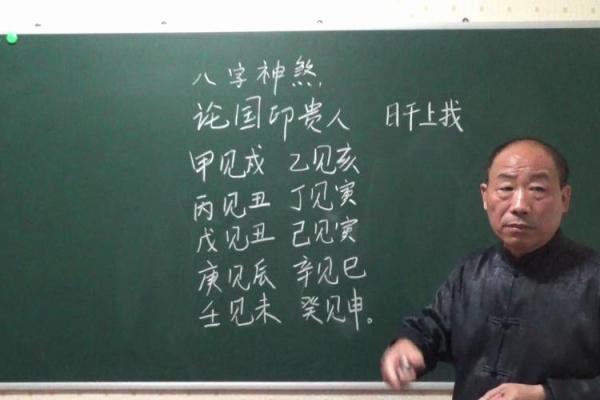 八字神煞,
论国印贵人 日干上找
甲见戌 乙见亥
丙见丑 丁见寅
戊见丑 己见寅
庚见辰 辛见巳
壬见未 癸见申。